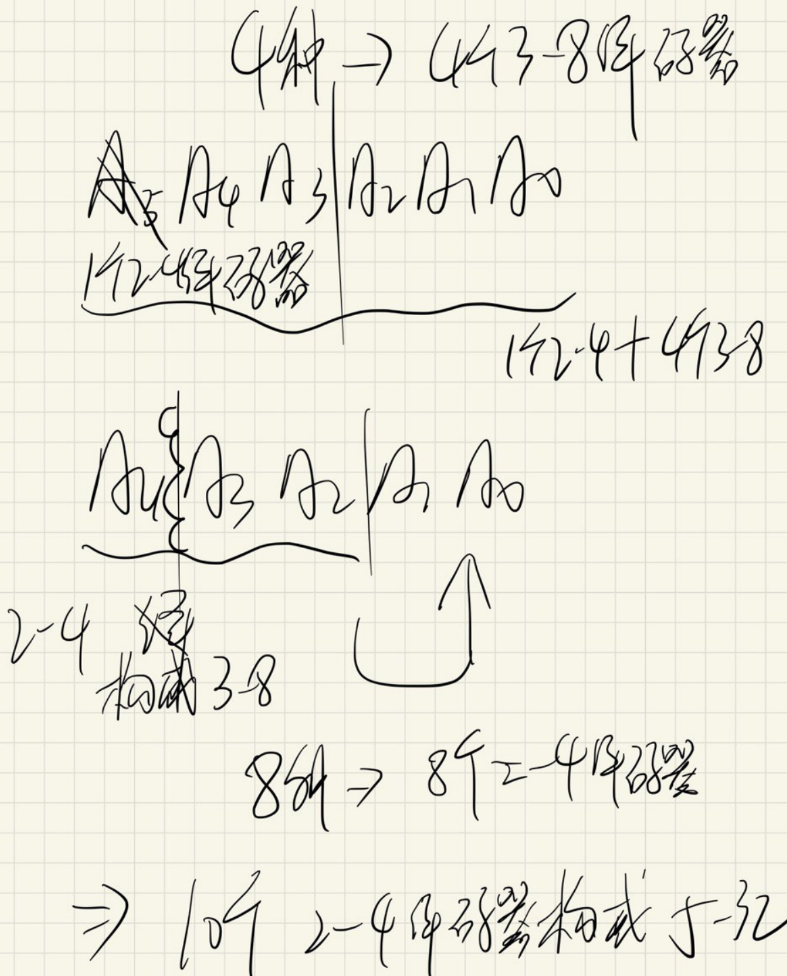 4种 → 4个3-8译码器
A5 A4 A3 | A2 A1 A0
1个2-4译码器
1个2-4+4个3-8
A4 A3 A2 | A1 A0
2-4
构成3-8
8种 → 8个2-4译码器
⇒ 10个 2-4译码器构成 5-32